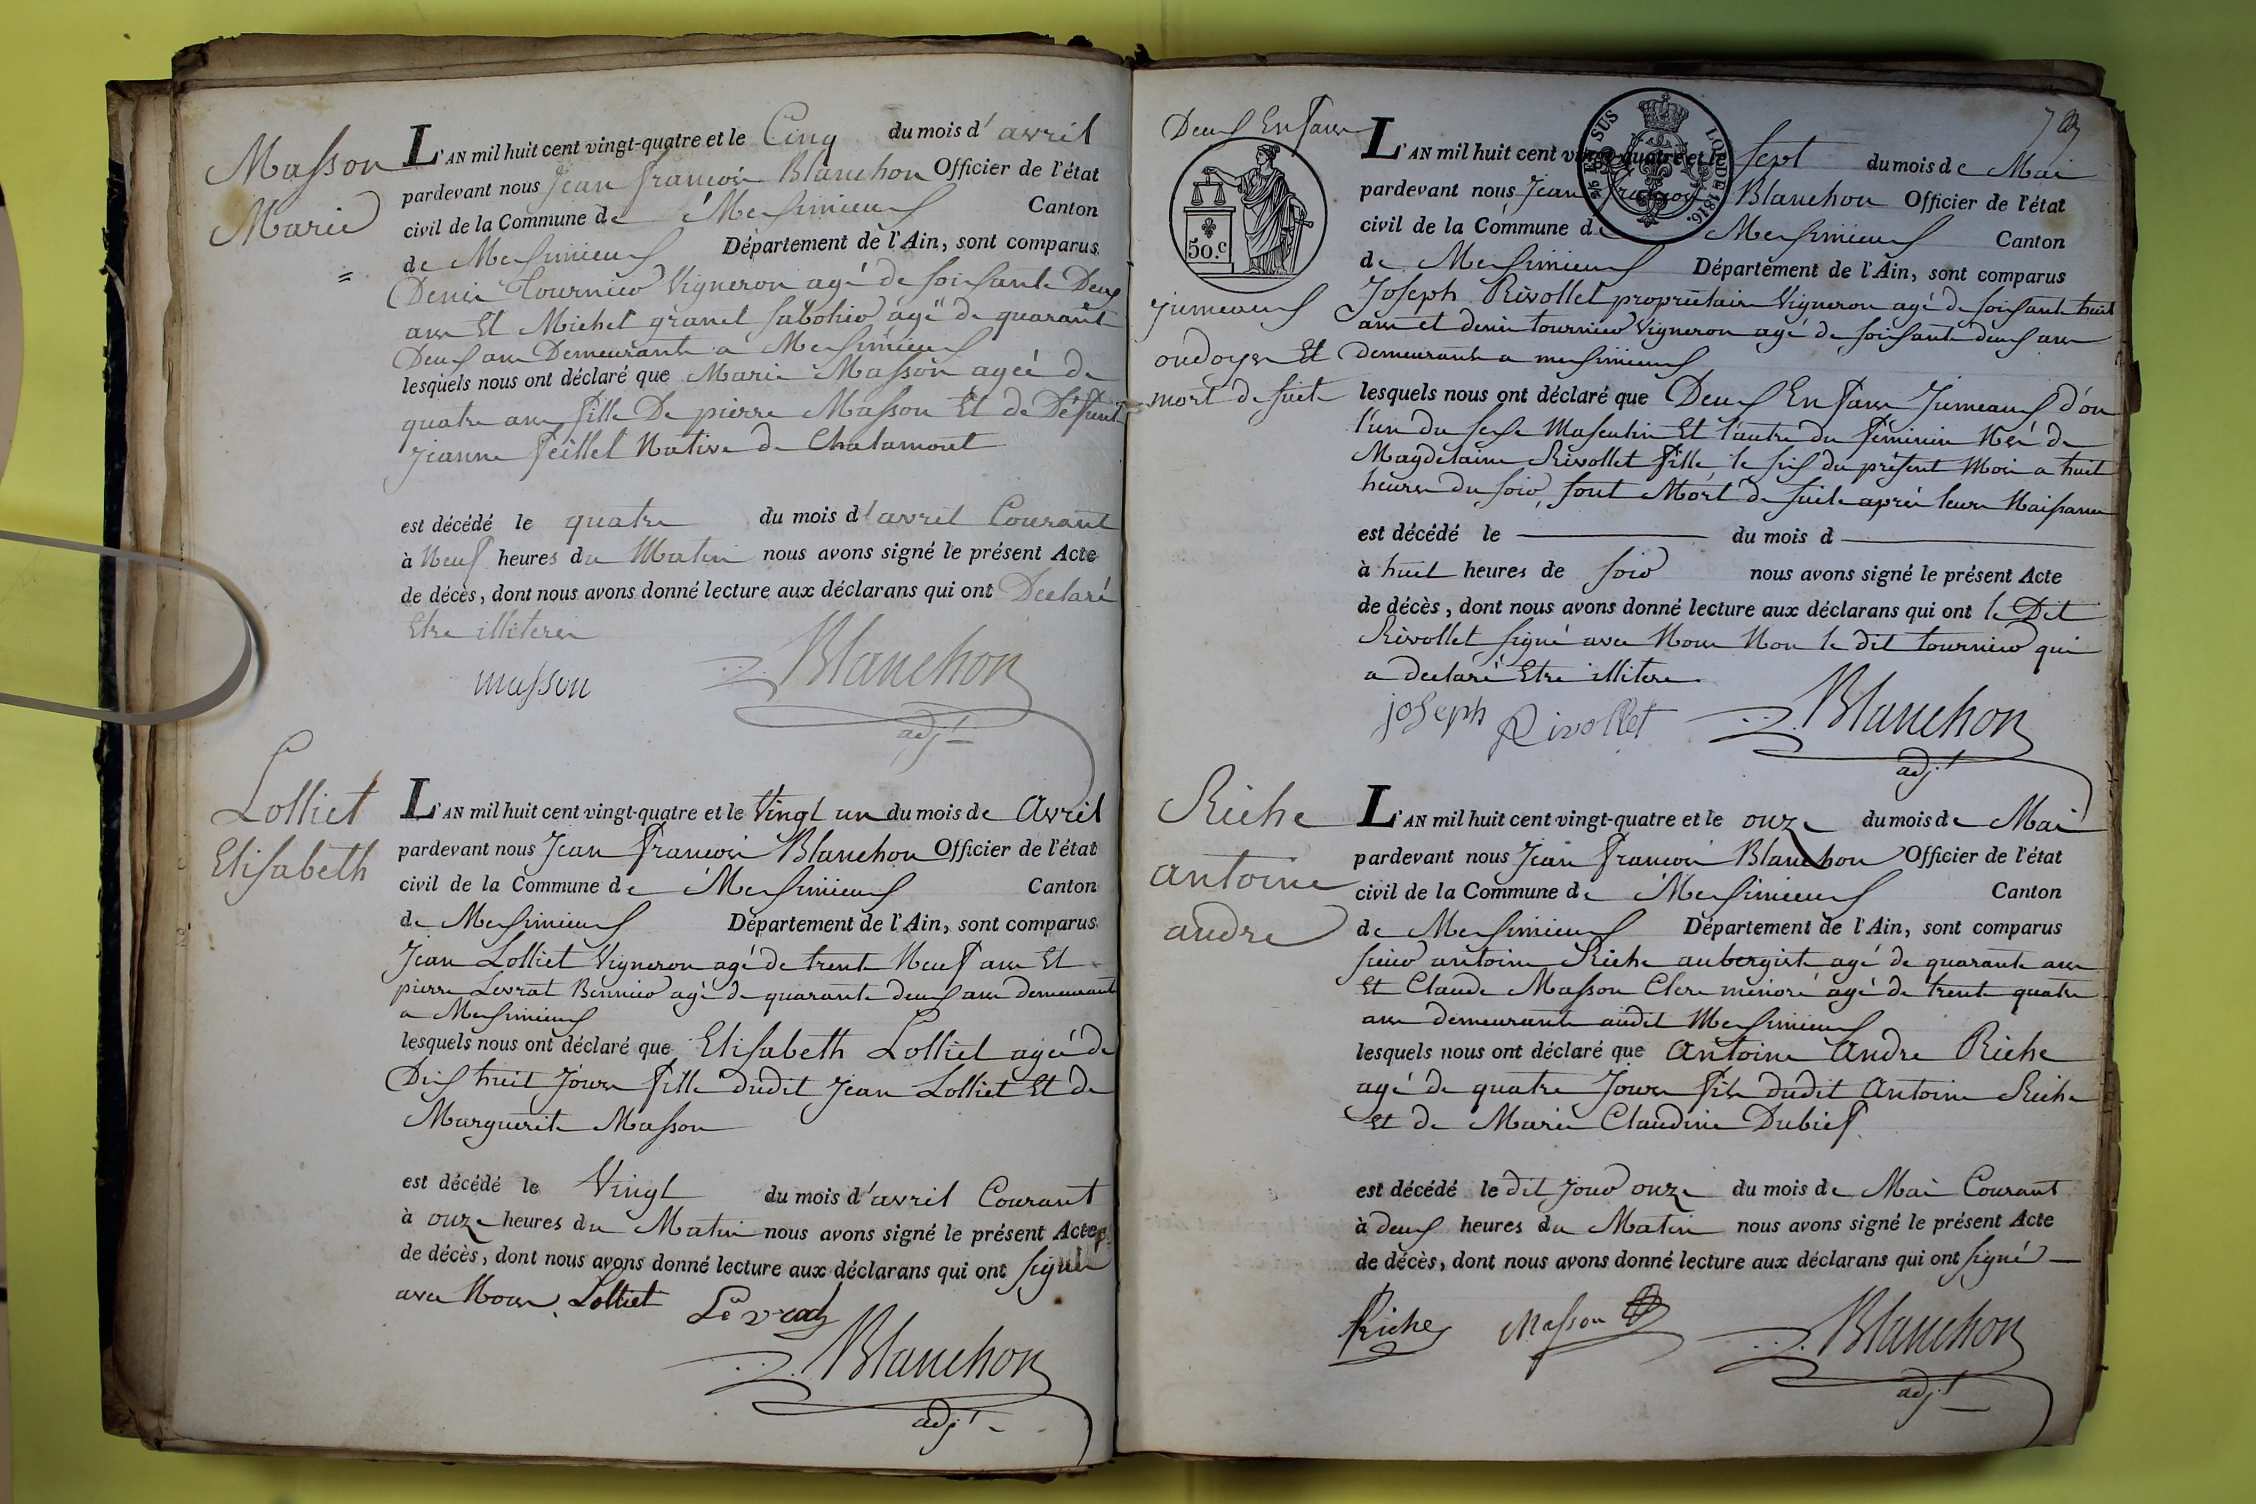 Masson
Marie
L'AN mil huit cent vingt-quatre et le Cinq du mois d'avril
pardevant nous Jean françois Blanchon Officier de l'état
civil de la Commune de Messimieux Canton
de Messimieux Département de l'Ain, sont comparus
Denis Tournier Vigneron agé de soisante Deux
ans Et Michel granel Sabotier agé de quarante
Deux ans Demeurants a Messimieux
lesquels nous ont déclaré que Marie Masson ageé de
quatre ans fille De pierre Masson Et de Défunte
Jeanne feillet Native de Chalamont
est décédé le quatre du mois d'avril Courant
à Neuf heures du Matin nous avons signé le présent Acte
de décès, dont nous avons donné lecture aux déclarans qui ont Déclaré
Etre illiteres
masson Blanchon
adjt
Lolliet
Elisabeth
L'AN mil huit cent vingt-quatre et le Vingt un du mois de Avril
pardevant nous Jean françois Blanchon Officier de l'état
civil de la Commune de Messimieux Canton
de Messimieux Département de l'Ain, sont comparus
Jean Lolliet Vigneron agé de trente Neuf ans Et
pierre Levrat agé de quarante deux ans demeurants
a Messimieux
lesquels nous ont déclaré que Elisabeth Lolliet ageé de
Dix huit Jours fille dudit Jean Lolliet Et de
Marguerite Masson
est décédé le Vingt du mois d'avril Courant
à onze heures du Matin nous avons signé le présent Acte
de décès, dont nous avons donné lecture aux déclarans qui ont signé
avec Nous. Lolliet Levrat
Blanchon
adjt
Deux Enfans
50.c
jumeaux
ondoyes Et
mort de suite
7
TIMBRE SUS LOI DE 1816.
L'AN mil huit cent vingt-quatre et le sept du mois de Mai
pardevant nous Jean françois Blanchon Officier de l'état
civil de la Commune de Messimieux Canton
de Messimieux Département de l'Ain, sont comparus
Joseph Rivollet propriétaire Vigneron agé de soisante huit
ans et denis tournier Vigneron agé de soisante deux ans
demeurants a messimieux
lesquels nous ont déclaré que Deux Enfans Jumeaux d'on
l'un du sexe Masculin Et l'autre du féminin Neé de
Magdelaine Rivollet fille, le six du présent Mois a huit
heures du soir, sont Mort de suite après leurs Naissance
est décédé le du mois d
à huit heures de soir nous avons signé le présent Acte
de décès, dont nous avons donné lecture aux déclarans qui ont le Dit
Rivollet signé avec Nous Non le dit tournier qui
a declaré Etre illitere
joseph Rivollet Blanchon
adjt
Riche
antoine
andre
L'AN mil huit cent vingt-quatre et le onze du mois de Mai
pardevant nous Jean françois Blanchon Officier de l'état
civil de la Commune de Messimieux Canton
de Messimieux Département de l'Ain, sont comparus
sieur antoine Riche aubergiste agé de quarante ans
Et Claude Masson Clerc minoré agé de trente quatre
ans demeurants audit Messimieux
lesquels nous ont déclaré que Antoine Andre Riche
agé de quatre Jours fils dudit Antoine Riche
Et de Marie Claudine Dubief
est décédé le dit jour onze du mois de Mai Courant
à deux heures du Matin nous avons signé le présent Acte
de décès, dont nous avons donné lecture aux déclarans qui ont signé
Riche Masson Blanchon
adjt